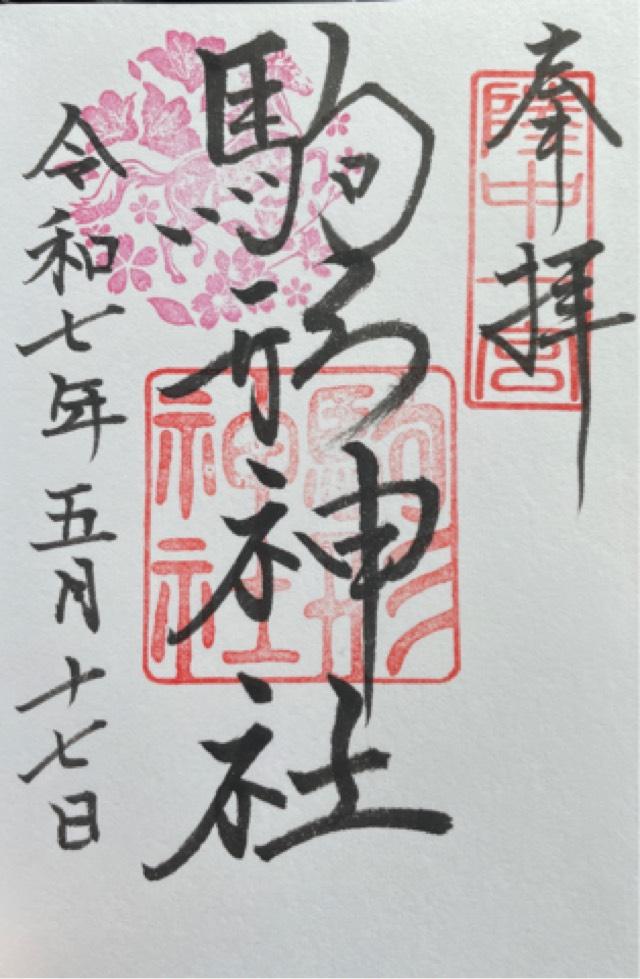 奉拝
陸中一宮
駒形神社
駒形神社
令和七年五月十七日